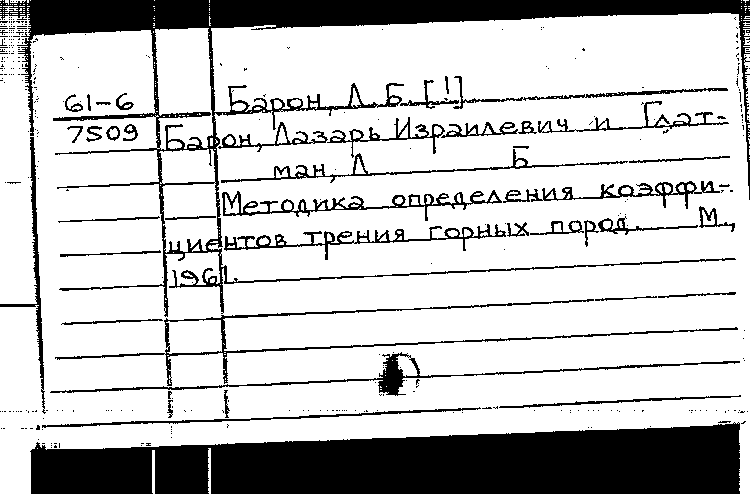 61-6 Барон, Л. Б. [!]
7509 Барон, Лазарь Израилевич и Глат-
ман, Л Б
Методика определения коэффи-
циентов трения горных пород. М.,
1961.